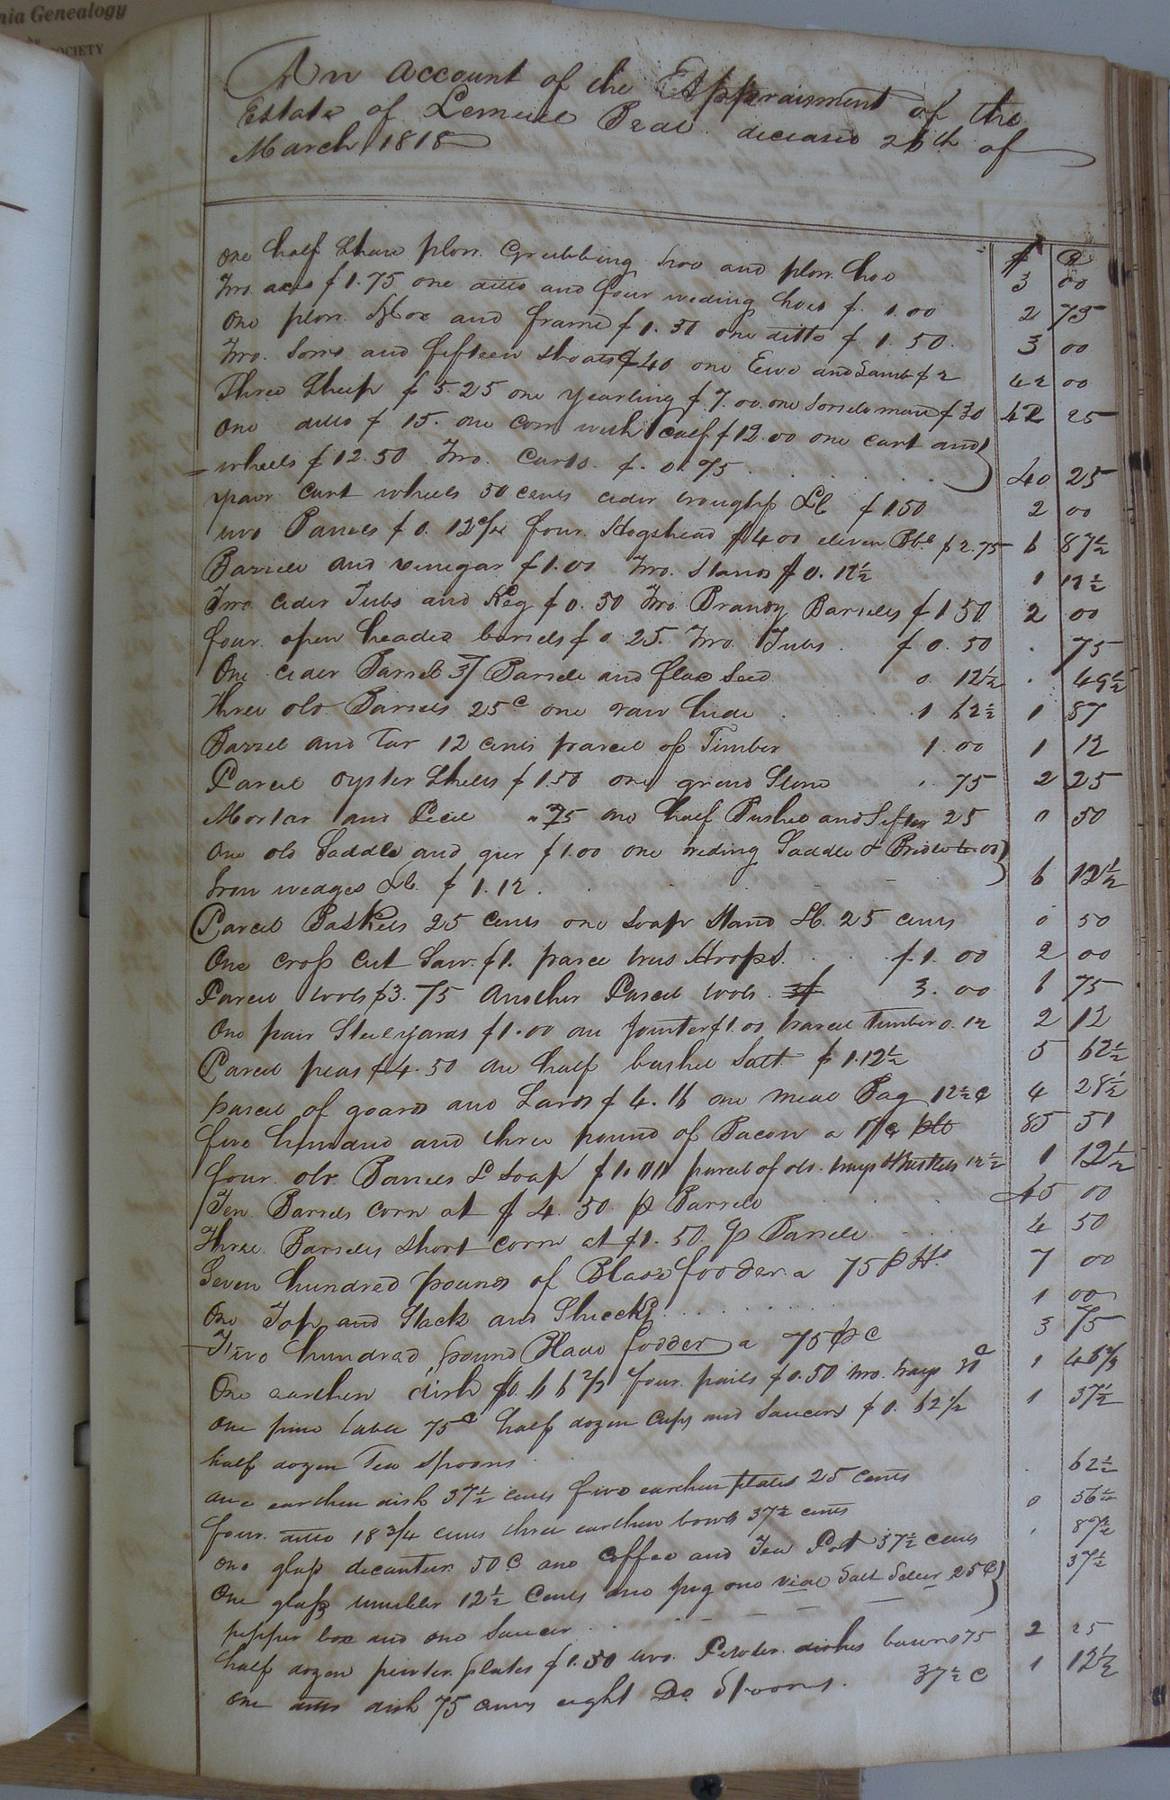 nia Genealogy
SOCIETY
An Account of the Appraisment of the
Estate of Lemuel deceased 26th of
March 1818
$ C
One half Share plow Grubbing hoe and plow hoe 3 00
Two axes $1.75 one ditto and four weding hoes $ 1.00 2 75
One plow Hoe and frame $1.50 one ditto $ 1.50. 3 00
Two. Sows and fifteen shoats $40 one Ewe and Lamb $2 42 00
Three Sheep $ 5.25 one yearling $7.00 one Sorrele mare $30 42 25
One ditto $ 15. one cow with calf $12.00 one cart and
wheels $12.50 Two. Carts. $. 0.75 40 25
pair cart wheels 50 cents cider trough &C $1.50 2 00
two Barrels $0.12½ four. Hogshead $4 00 eleven Bbs $2.75 6 87½
Barrele and vinegar $1.00 Two. Stands $0.12½ 1 12½
Two cider Tubs and Keg $0.50 Two Brandy Barreles $1 50 2 00
four. open headed barrels $0 25. Two. Tubs. $0.50 . 75
One cider Barrel 37 Barrele and flax Seed 0 12½ . 49½
Three old Barrels 25c one raw hide .1 62½ 1 87
Barrel and Tar 12 cents parcel of Timber 1.00 1 12
Parcel oyster Shells $1.50 one grind Stone . 75 2 25
Mortar and 25 one half Bushel and Sifter 25 0 50
One old Saddle and geer $1.00 one reding Saddle & Bridle
Iron wedges &C. $1.12. 6 12½
Parcel Baskets 25 cents one soap Stand &C. 25 cents 0 50
One cross cut Saw $1. parcel $.1 00 2 00
Parcel tools $3.75 Another Parcel tools 3.00 6 75
One pair Steelyards $1.00 one Jointer $1.00 parcel timber 0.12 2 12
Parcel peas $4.50 one half bushel Salt $1.12½ 5 62½
parcel of goards and Lard $4.16 one meal Bag 12½¢ 4 28½
five hundred and three pound of Bacon a 17¢ 85 51
four old Barrels & Soap $1.00 parcel of old trays 12½ 1 12½
Ten Barrels corn at $4.50 p Barrele 45 00
Three Barrels short corn at $1.50 p Barrele 4 50
Seven hundred pounds of Blade fodder a 75 p 7 00
One Top and Stack and Shucks 1 00
hundred pound Blade fodder a 75 p C 3 75
One earthen dish $0.66⅔ four pails $0.50 two. trays 1
One pine table 75c half dozen Cups and Saucers $0.62½ 1 37½
half dozen Tea Spoons . 62½
one earthen dish 37½ cents five earthen plates 25 cents 0 56½
four. ditto 18¾ cents three earthen bowls 37½ cents . 87½
one glass decanter 50 C one Coffee and Tea Pot 37½ cents 37½
One glass tumbler 12½ Cents one Jug one vial Salt Seller 25C
pepper box and one Saucer 2 25
half dozen pewter plates $1.50 two. Pewter dishes 75 1 12½
one ditto dish 75 cents eight Do Spoons. 37½ C